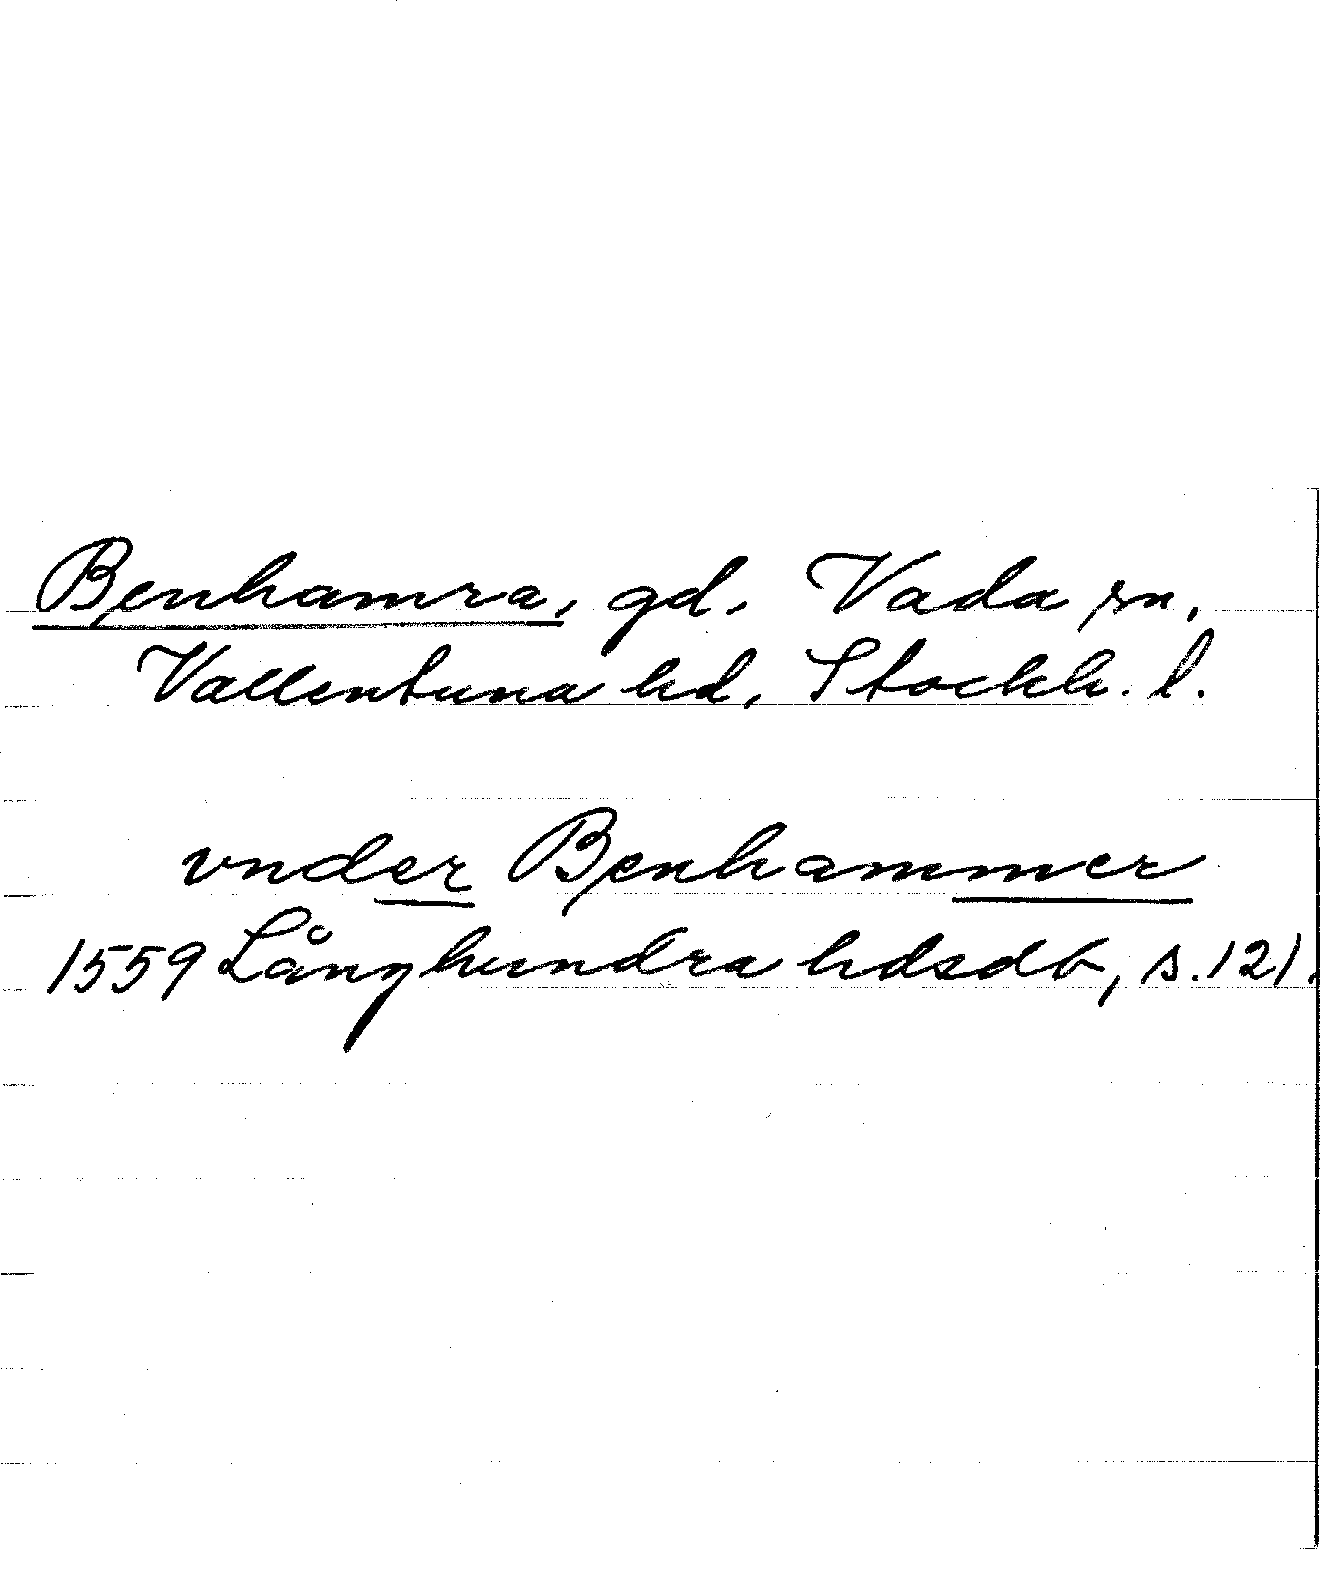 Benhamra, gd. Vada sn,
Vallentuna hd, Stockh. l.
vnder Benhammer
1559 Långhundra hdsdb, s. 121.